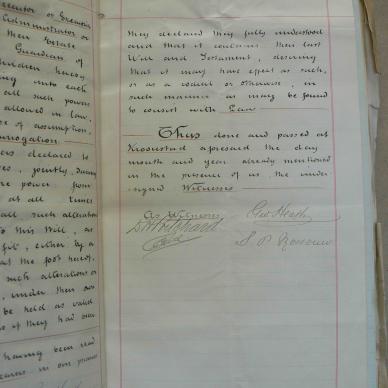 ecutor or Executor
Administrator or
their Estate
Guardian of
hildren hereby
ing unto each
all such powers
allowed in law,
e of assumption,
urrogation.
ers declared to
es, jointly, during
re power from
at all times
all such alterations
this Will, as
fit, either by a
at the foot hereof,
such alterations or
, under their own
be held as valid
s if they had been
having been read
earers in our presence
they declared they fully understood
and that it contains their last
Will and Testament, desiring
that it may have effect as such,
or as a codicil or otherwise, in
such manner as may be found
to consist with Law.
Thus done and passed at
Kroonstad aforesaid the day
month and year already mentioned
in the presence of us, the under
signed Witnesses
As Witnesses
D H Pritchard